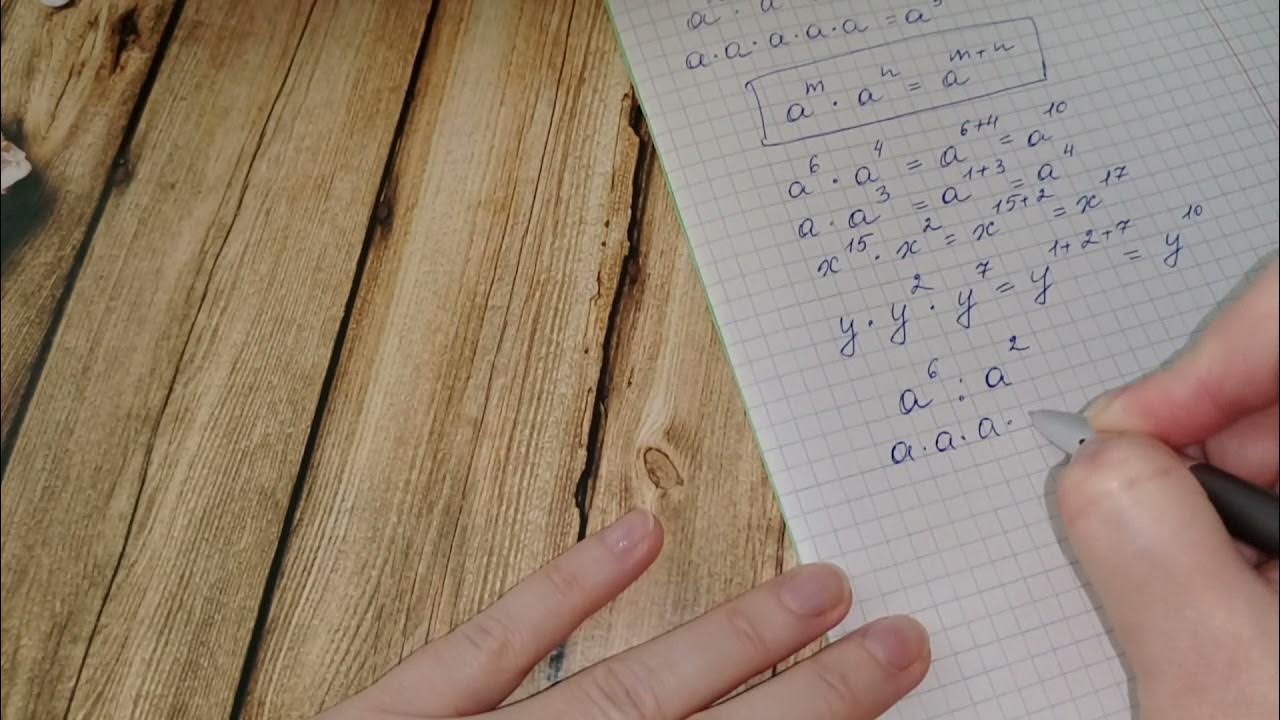 a · a
a·a·a·a·a = a⁵
aᵐ · aⁿ = aᵐ⁺ⁿ
a⁶ · a⁴ = a⁶⁺⁴ = a¹⁰
a · a³ = a¹⁺³ = a⁴
x¹⁵ · x² = x¹⁵⁺² = x¹⁷
y · y² · y⁷ = y¹⁺²⁺⁷ = y¹⁰
a⁶ : a²
a·a·a·